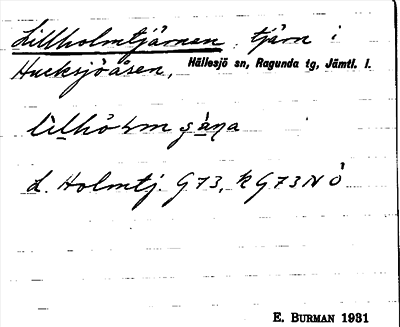 Lillholmtjärnen, tjärn i
Hucksjöåsen, Hällesjö sn, Ragunda tg, Jämtl. l.
L. Holmtj. G73, k G73NÖ
E. BURMAN 1931